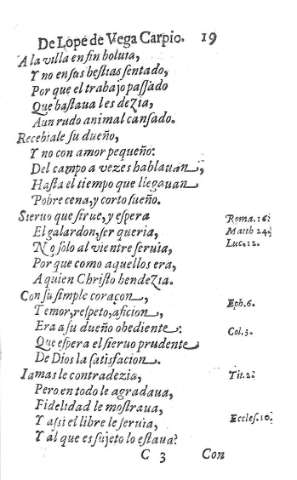 De Lope de Vega Carpio. 19
A la villa en fin boluia,
Y no en sus bestias sentado,
Por que el trabajo passado
Que bastaua les dezia,
A un rudo animal cansado.
Recebiale su dueño,
Y no con amor pequeño:
Del campo a vezes hablauan,
Hasta el tiempo que llegauan
Pobre cena, y corto sueño.
Sieruo que sirue, y espera Roma. 16.
El galardon, ser queria, Matth 24.
No solo al vientre seruia, Luc. 12.
Por que como aquellos era,
A quien Christo bendezia.
Con su simple coraçon, Eph. 6.
Temor, respeto, aficion,
Era a su dueño obediente: Col. 3.
Que espera el sieruo prudente
De Dios la satisfacion.
Iamas le contradezia, Tit. 2.
Pero en todo le agradaua,
Fidelidad le mostraua,
Y assi el libre le seruia, Eccles. 10.
Y al que es sujeto lo estaua?
C 3 Con